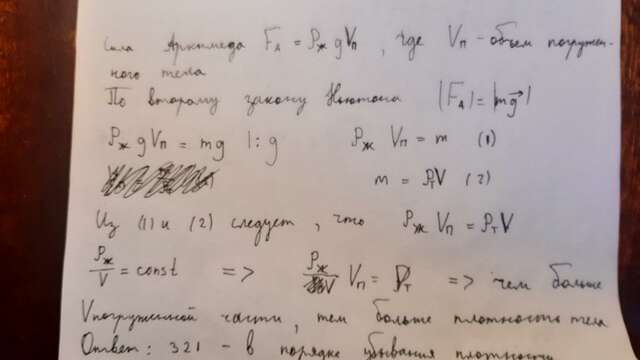 Сила Архимеда F_A = ρ_ж g V_п, где V_п - объем погружен-
ного тела
По второму закону Ньютона |F_A| = |mg⃗|
ρ_ж g V_п = mg |: g ρ_ж V_п = m (1)
m = ρ_т V (2)
Из (1) и (2) следует, что ρ_ж V_п = ρ_т V
ρ_ж/V = const => ρ_ж/V V_п = ρ_т => чем больше
V погруженной части, тем больше плотность тела
Ответ: 321 - в порядке убывания плотности